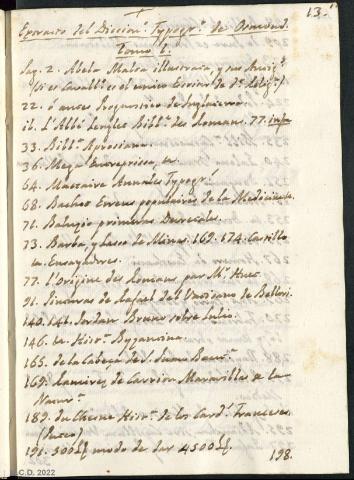 13.
+
Extracto del Diccion.º Typogr.º de Osmond.
Tomo I.
Pag. 2. Abela Malta illustrata, y sus Antig.s
(si es Cavall.º es el unico Escritor de su Relig.n)
22. ó antes
ib. L'Abbé Lenglet Bibl.e des Romans. 77. infra
33. Bibl.a Aprosiana.
36. Mega
64. Maettaire Annales Typogr.
68. Bachot Erreurs populaires de la Medicine &a
71. Baluzio primeras Decretales.
73. Barba, y Lasso de Minas. 169. 174. Carrillo
Ensayadores.
77. L'Origine des Romans par Mr. Huet.
91. Pinturas de Rafael del Vaticano de Bellori.
140. 141. Jordan Bruno sobre Lulio.
146. Hist.a Byzantina.
165. de la Cabeza de S. Juan Baut.a
169. Ramirez de Carrion Maravillas de la
Natur.a
189. du Chesne Hist.a de los Card.s Franceses
191. 300 modo de dar 4500
198.
B.C.D. 2022